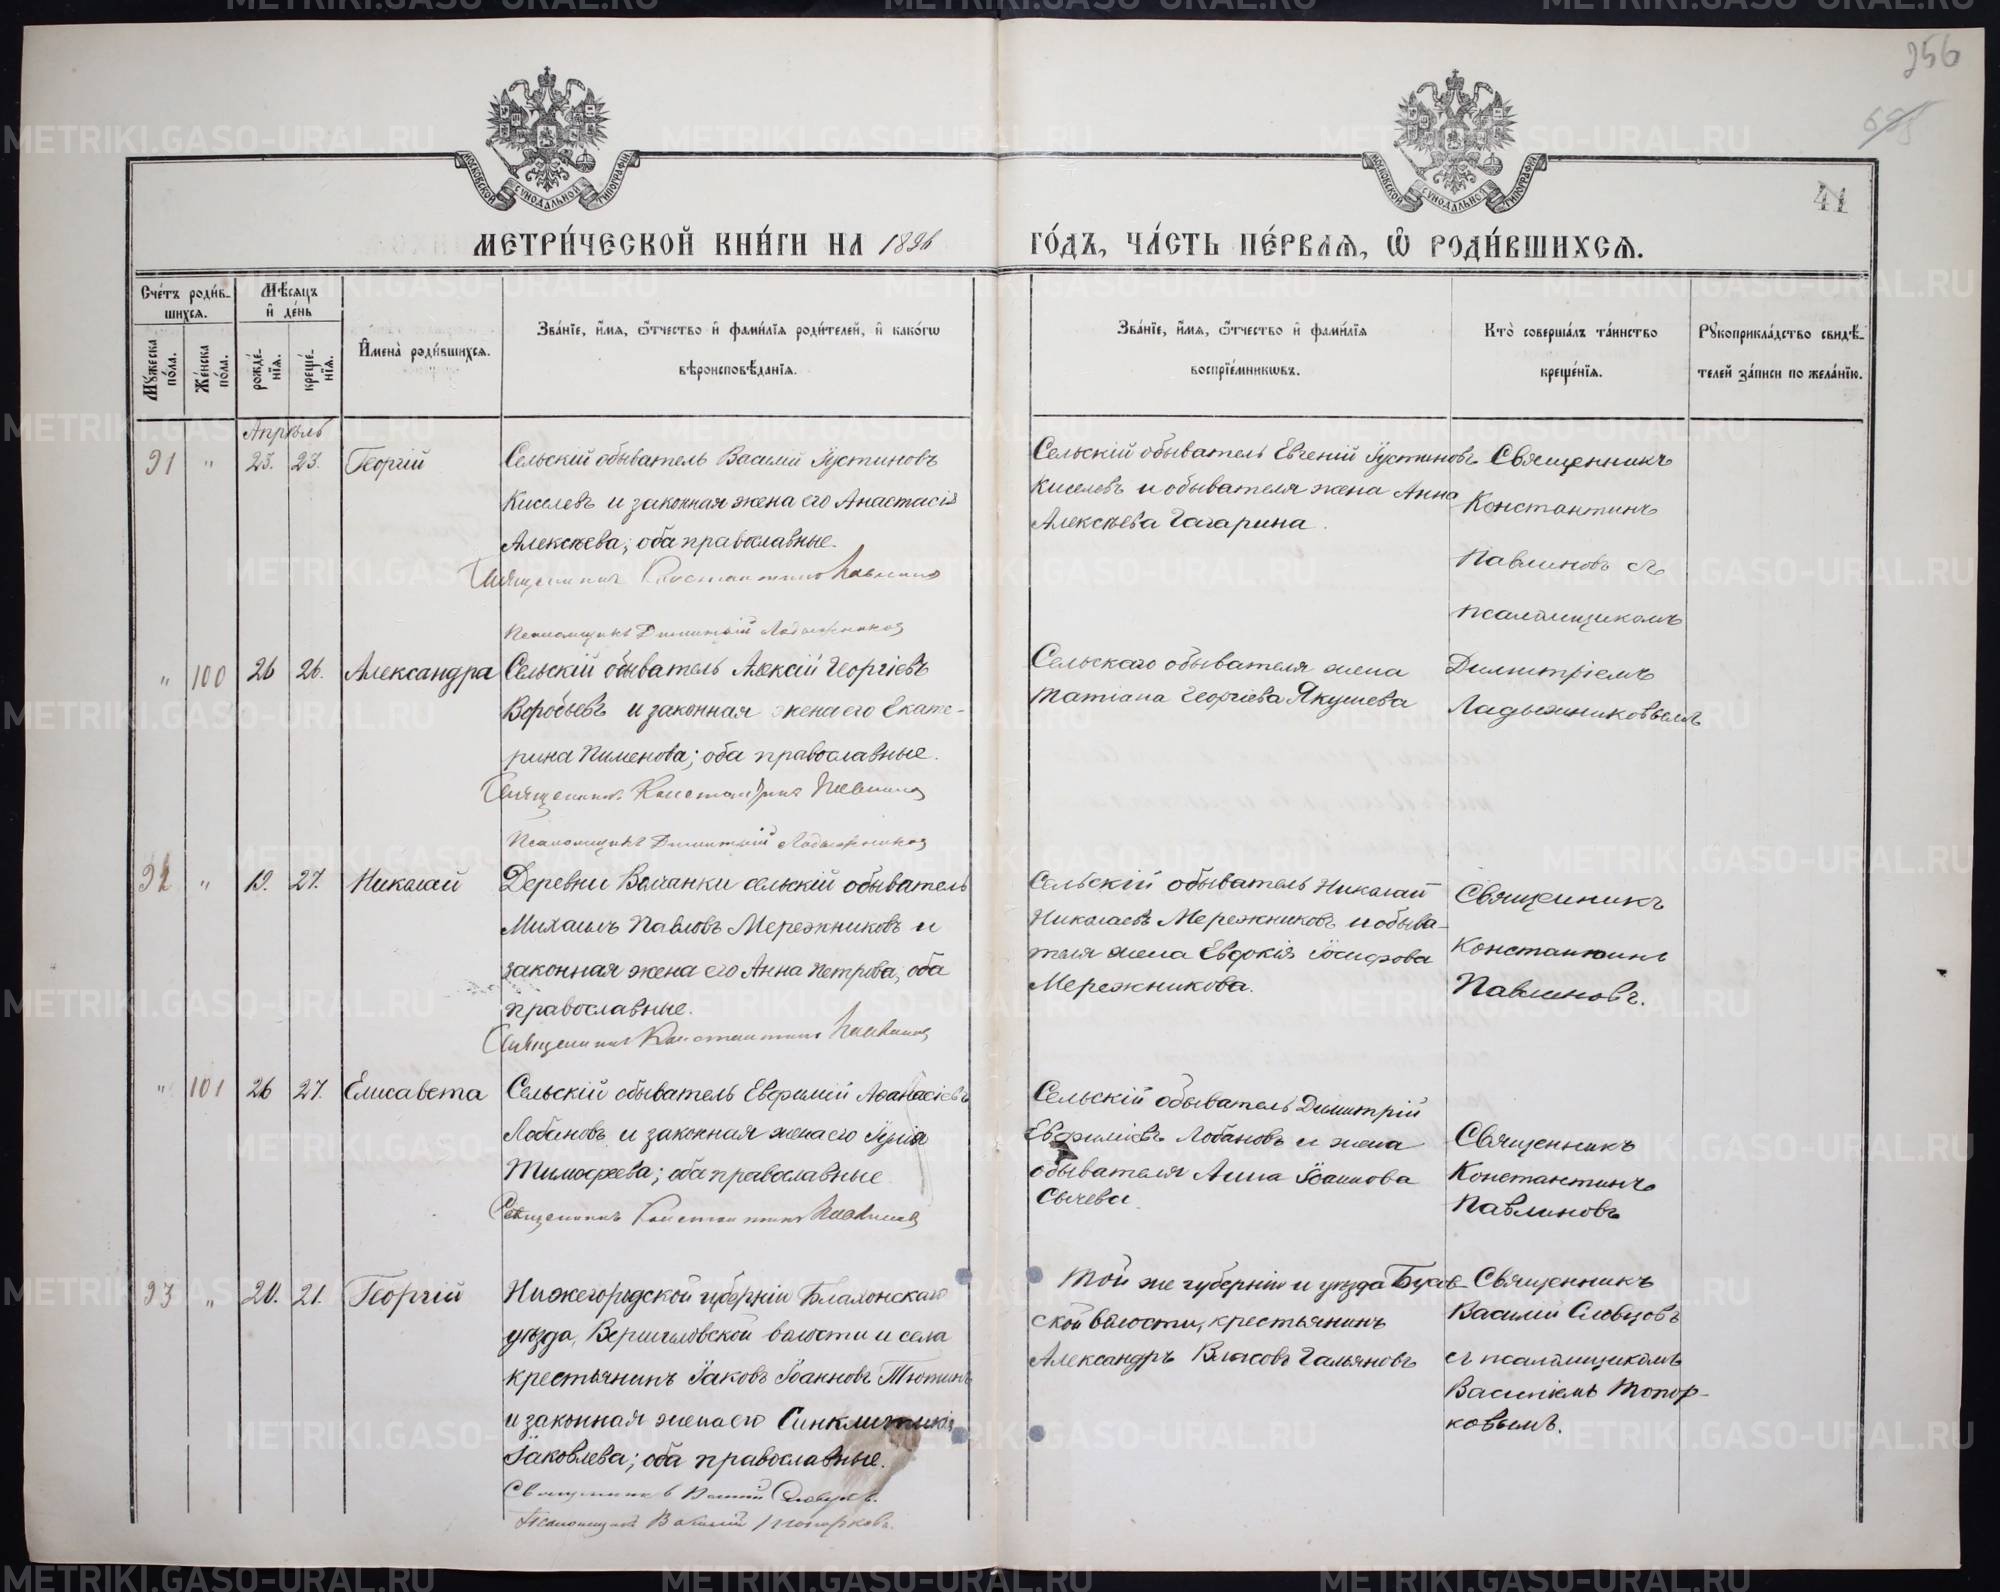 256
41
МОСКОВСКОЙ СУНОДАЛЬНОЙ ТИПОГРАФІИ
МОСКОВСКОЙ СУНОДАЛЬНОЙ ТИПОГРАФІИ
МЕТРИ́ЧЕСКОЙ КНИ́ГИ НА 1896
ГО́ДЪ, ЧА́СТЬ ПЕ́РВАЯ, Ѡ РОДИ́ВШИХСЯ.
Сче́тъ роди́в-
шихся.
Мѣ́сяцъ
и҆ де́нь
Му́жеска по́ла.
Же́нска по́ла.
рожде́-
нїя.
креще́-
нїя.
И҆мена̀ роди́вшихся.
Зва́нїе, и҆́мя, ѻ҆́тчество и҆ фами́лїя роди́телей, и҆ како́гѡ
вѣроисповѣ́данїя.
Зва́нїе, и҆́мя, ѻ҆́тчество и҆ фами́лїя
воспрїе́мникѡвъ.
Кто̀ соверша́лъ та́инство
креще́нїя.
Рꙋкоприкла́дство свидѣ́-
телей за́писи по жела́нїю.
Апрѣль
91 " 23. 23. Георгій
Сельскій обыватель Василій Іустиновъ
Киселевъ и законная жена его Анастасія
Алексѣева; оба православные.
Священникъ Константинъ Павлиновъ
Псаломщикъ Димитрій Ладыжниковъ
Сельскій обыватель Евгеній Іустиновъ
Киселевъ и обывателя жена Анна
Алексѣева Гагарина.
Священникъ
Константинъ
Павлиновъ съ
псаломщикомъ
Димитріемъ
Ладыжниковымъ
" 100 26 26. Александра
Сельскій обыватель Алексій Георгіевъ
Воробьевъ и законная жена его Екате-
рина Пименова; оба православные.
Священникъ Константинъ Павлиновъ
Псаломщикъ Димитрій Ладыжниковъ
Сельскаго обывателя жена
Татіана Георгіева Якушева
92 " 19. 27. Николай
Деревни Волчанки сельскій обыватель
Михаилъ Павловъ Мережниковъ и
законная жена его Анна Петрова; оба
православные.
Священникъ Константинъ Павлиновъ
Сельскій обыватель Николай
Николаевъ Мережниковъ и обыва-
теля жена Евдокія Іосифова
Мережникова.
Священникъ
Константинъ
Павлиновъ.
" 101 26 27. Елисавета
Сельскій обыватель Евфимій Афанасіевъ
Лобановъ и законная жена его Іулія
Тимофеева; оба православные
Священникъ Константинъ Павлиновъ
Сельскій обыватель Димитрій
Евфиміевъ Лобановъ и жена
обывателя Анна Іоаннова
Сычева
Священникъ
Константинъ
Павлиновъ
93 " 20. 21. Георгій
Нижегородской губерніи Балахонскаго
уѣзда, Вершиловской волости и села
крестьянинъ Іаковъ Іоанновъ Тютинъ
и законная жена его Синклитикія
Іаковлева; оба православные.
Священникъ Василій Словцовъ.
Псаломщикъ Василій Топорковъ.
Той же губерніи и уѣзда
ской волости, крестьянинъ
Александръ Власовъ Гальяновъ
Священникъ
Василій Словцовъ
съ псаломщикомъ
Василіемъ Топор-
ковымъ.
METRIKI.GASO-URAL.RU